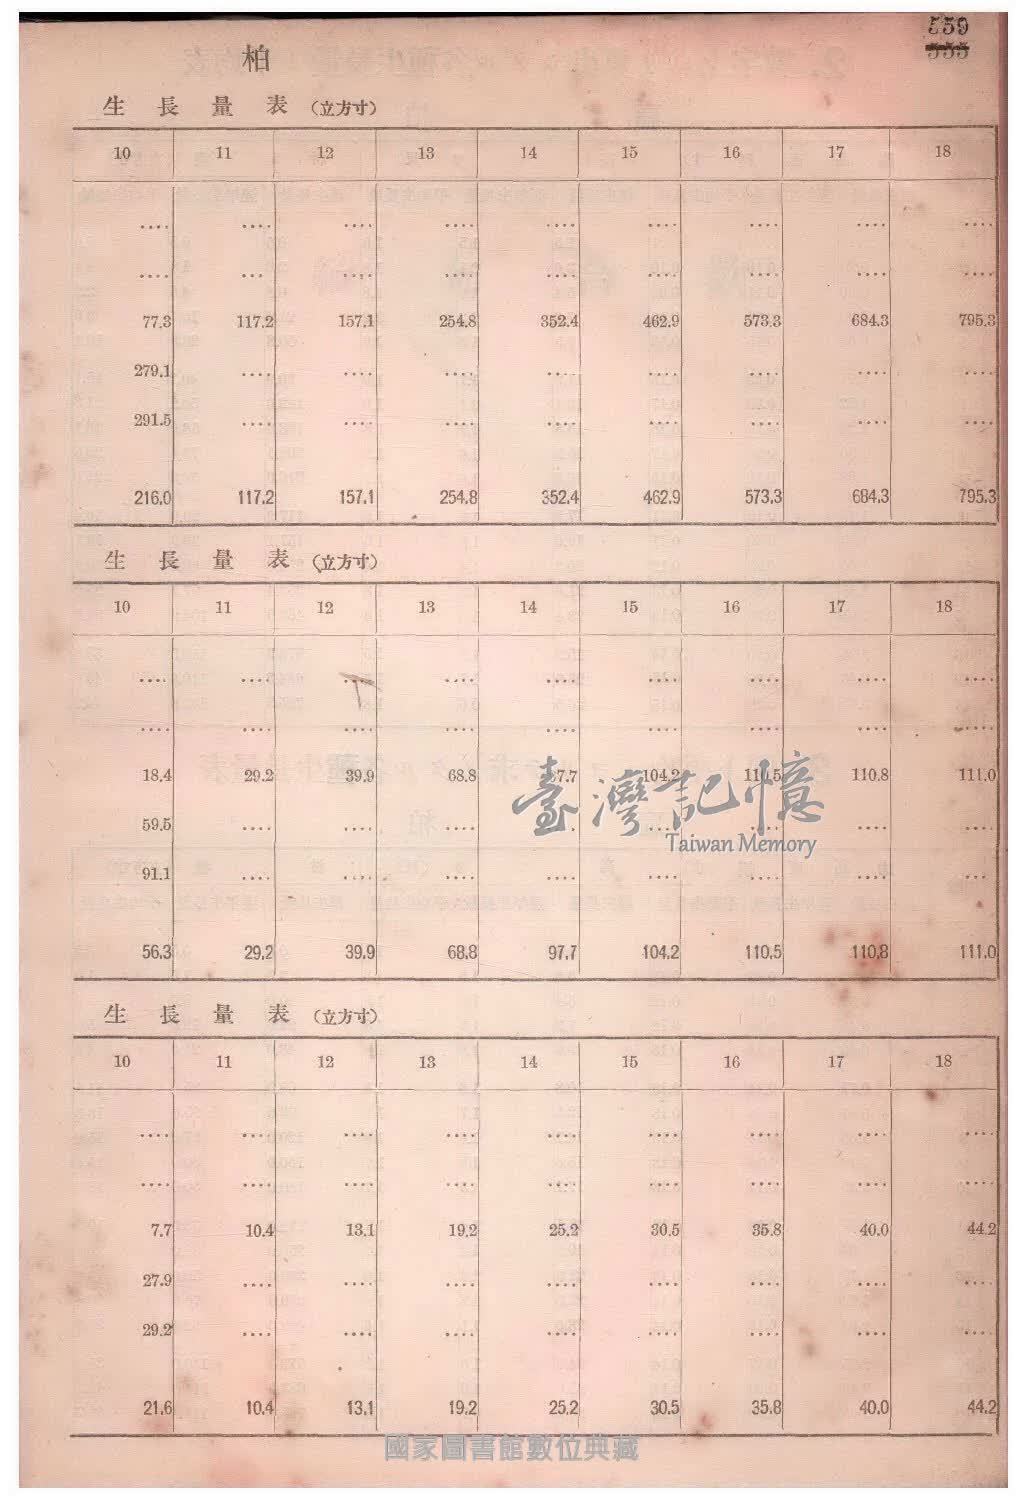 559
555
柏
生長量表(立方寸)
10 11 12 13 14 15 16 17 18
.... .... .... .... .... .... .... .... ....
.... .... .... .... .... .... .... .... ....
77.3 117.2 157.1 254.8 352.4 462.9 573.3 684.3 795.3
279.1 .... .... .... .... .... .... .... ....
291.5 .... .... .... .... .... .... .... ....
216.0 117.2 157.1 254.8 352.4 462.9 573.3 684.3 795.3
生長量表(立方寸)
10 11 12 13 14 15 16 17 18
.... .... .... .... .... .... .... .... ....
.... .... .... .... .... .... .... .... ....
18.4 29.2 39.9 68.8 97.7 104.2 110.5 110.8 111.0
59.5 .... .... .... .... .... .... .... ....
91.1 .... .... .... .... .... .... .... ....
56.3 29.2 39.9 68.8 97.7 104.2 110.5 110.8 111.0
臺灣記憶
Taiwan Memory
生長量表(立方寸)
10 11 12 13 14 15 16 17 18
.... .... .... .... .... .... .... .... ....
.... .... .... .... .... .... .... .... ....
7.7 10.4 13.1 19.2 25.2 30.5 35.8 40.0 44.2
27.9 .... .... .... .... .... .... .... ....
29.2 .... .... .... .... .... .... .... ....
21.6 10.4 13.1 19.2 25.2 30.5 35.8 40.0 44.2
國家圖書館數位典藏